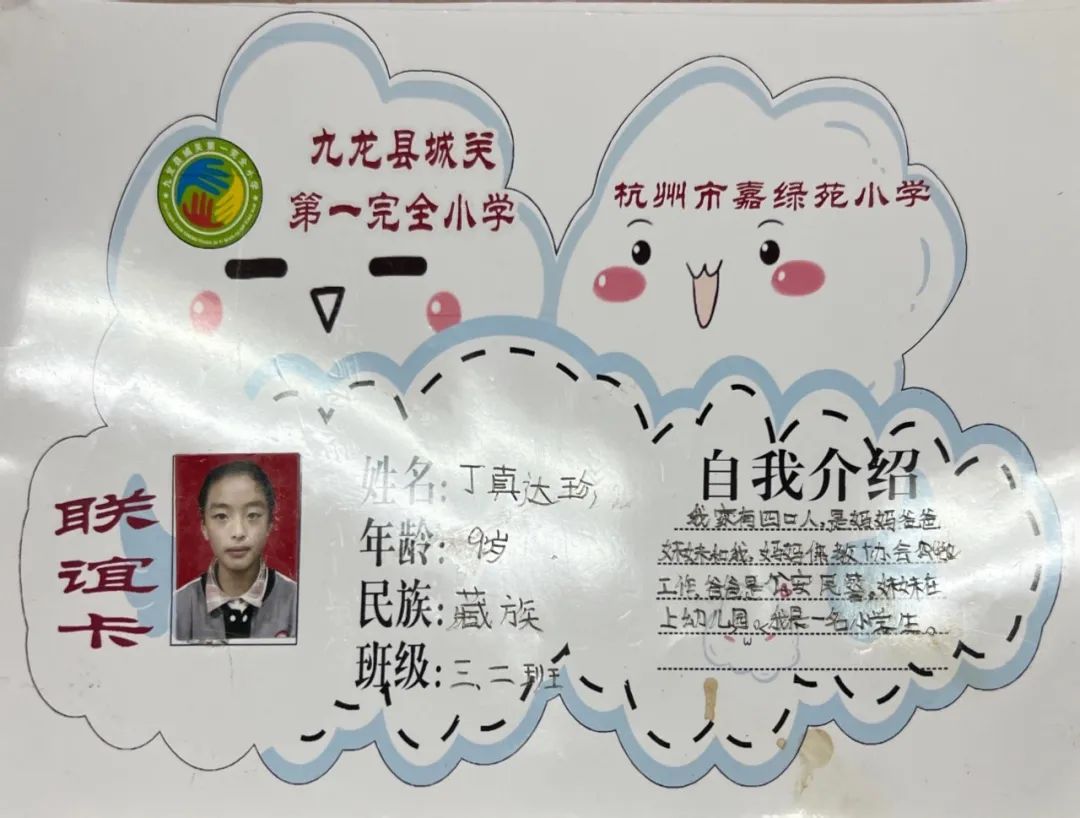 九龙县城关
第一完全小学
九龙县城关第一完全小学
杭州市嘉绿苑小学
联谊卡
姓名:丁真达珍
年龄:9岁
民族:藏族
班级:三、二班
自我介绍
我家有四口人,是妈妈爸爸
妹妹和我,妈妈在教协会
工作爸爸是公安民警,妹妹在
上幼儿园。我是一名小学生。